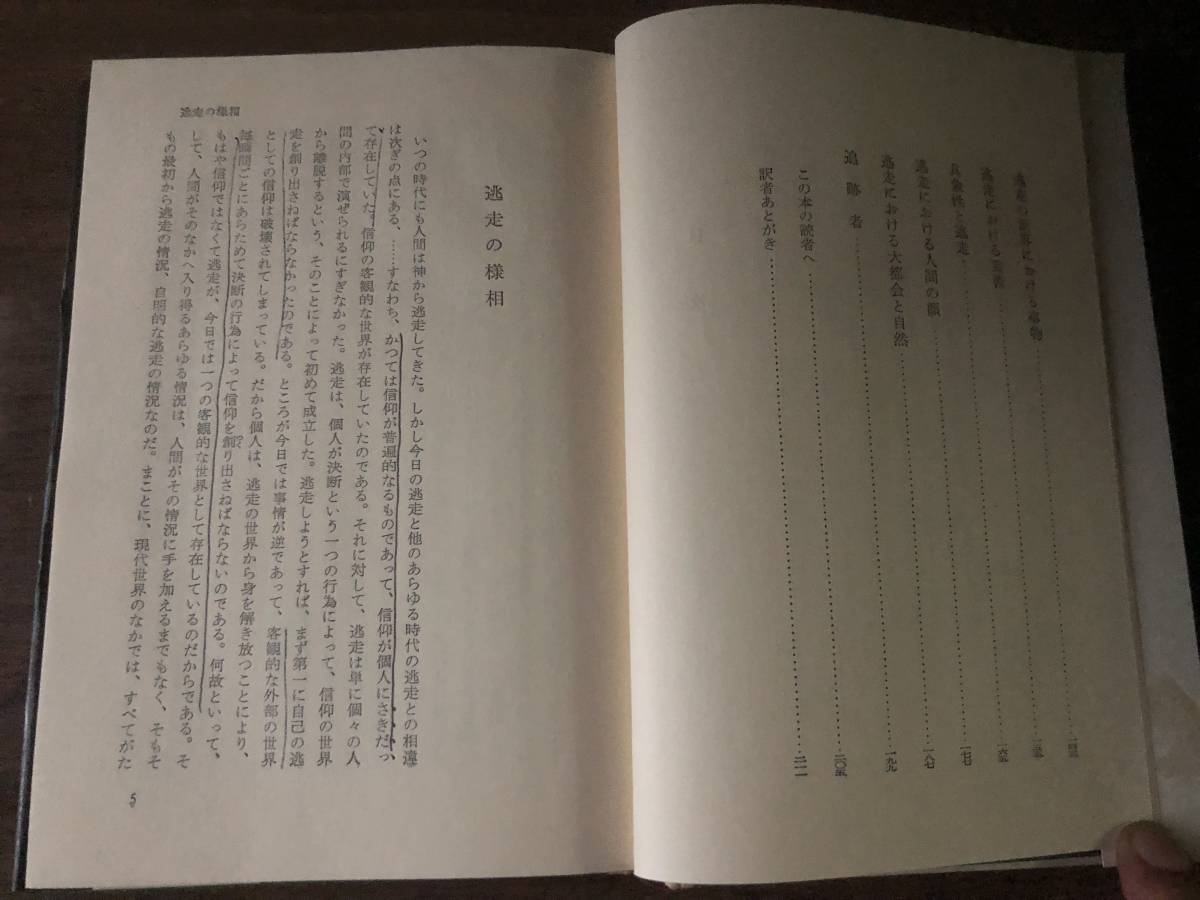 逃走の世界における事物
逃走における
具象性と逃走
逃走における人間の顔……一八七
逃走における大都会と自然……一九九
追跡者……二〇五
この本の読者へ……二一一
訳者あとがき
逃走の様相
逃走の様相
いつの時代にも人間は神から逃走してきた。しかし今日の逃走と他のあらゆる時代の逃走との相違
は次ぎの点にある、……すなわち、かつては信仰が普遍的なるものであって、信仰が個人にさきだっ
て存在していた。信仰の客観的な世界が存在していたのである。それに対して、逃走は単に個々の人
間の内部で演ぜられるにすぎなかった。逃走は、個人が決断という一つの行為によって、信仰の世界
から離脱するという、そのことによって初めて成立した。逃走しようとすれば、まず第一に自己の逃
走を創り出さねばならなかったのである。ところが今日では事情が逆であって、客観的な外部の世界
としての信仰は破壊されてしまっている。だから個人は、逃走の世界から身を解き放つことにより、
毎瞬間ごとにあらためて決断の行為によって信仰を創り出さねばならないのである。何故といって、
もはや信仰ではなくて逃走が、今日では一つの客観的な世界として存在しているのだからである。そ
して、人間がそのなかへ入り得るあらゆる情況は、人間がその情況に手を加えるまでもなく、そもそ
もの最初から逃走の情況、自明的な逃走の情況なのだ。まことに、現代世界のなかでは、すべてがた
5